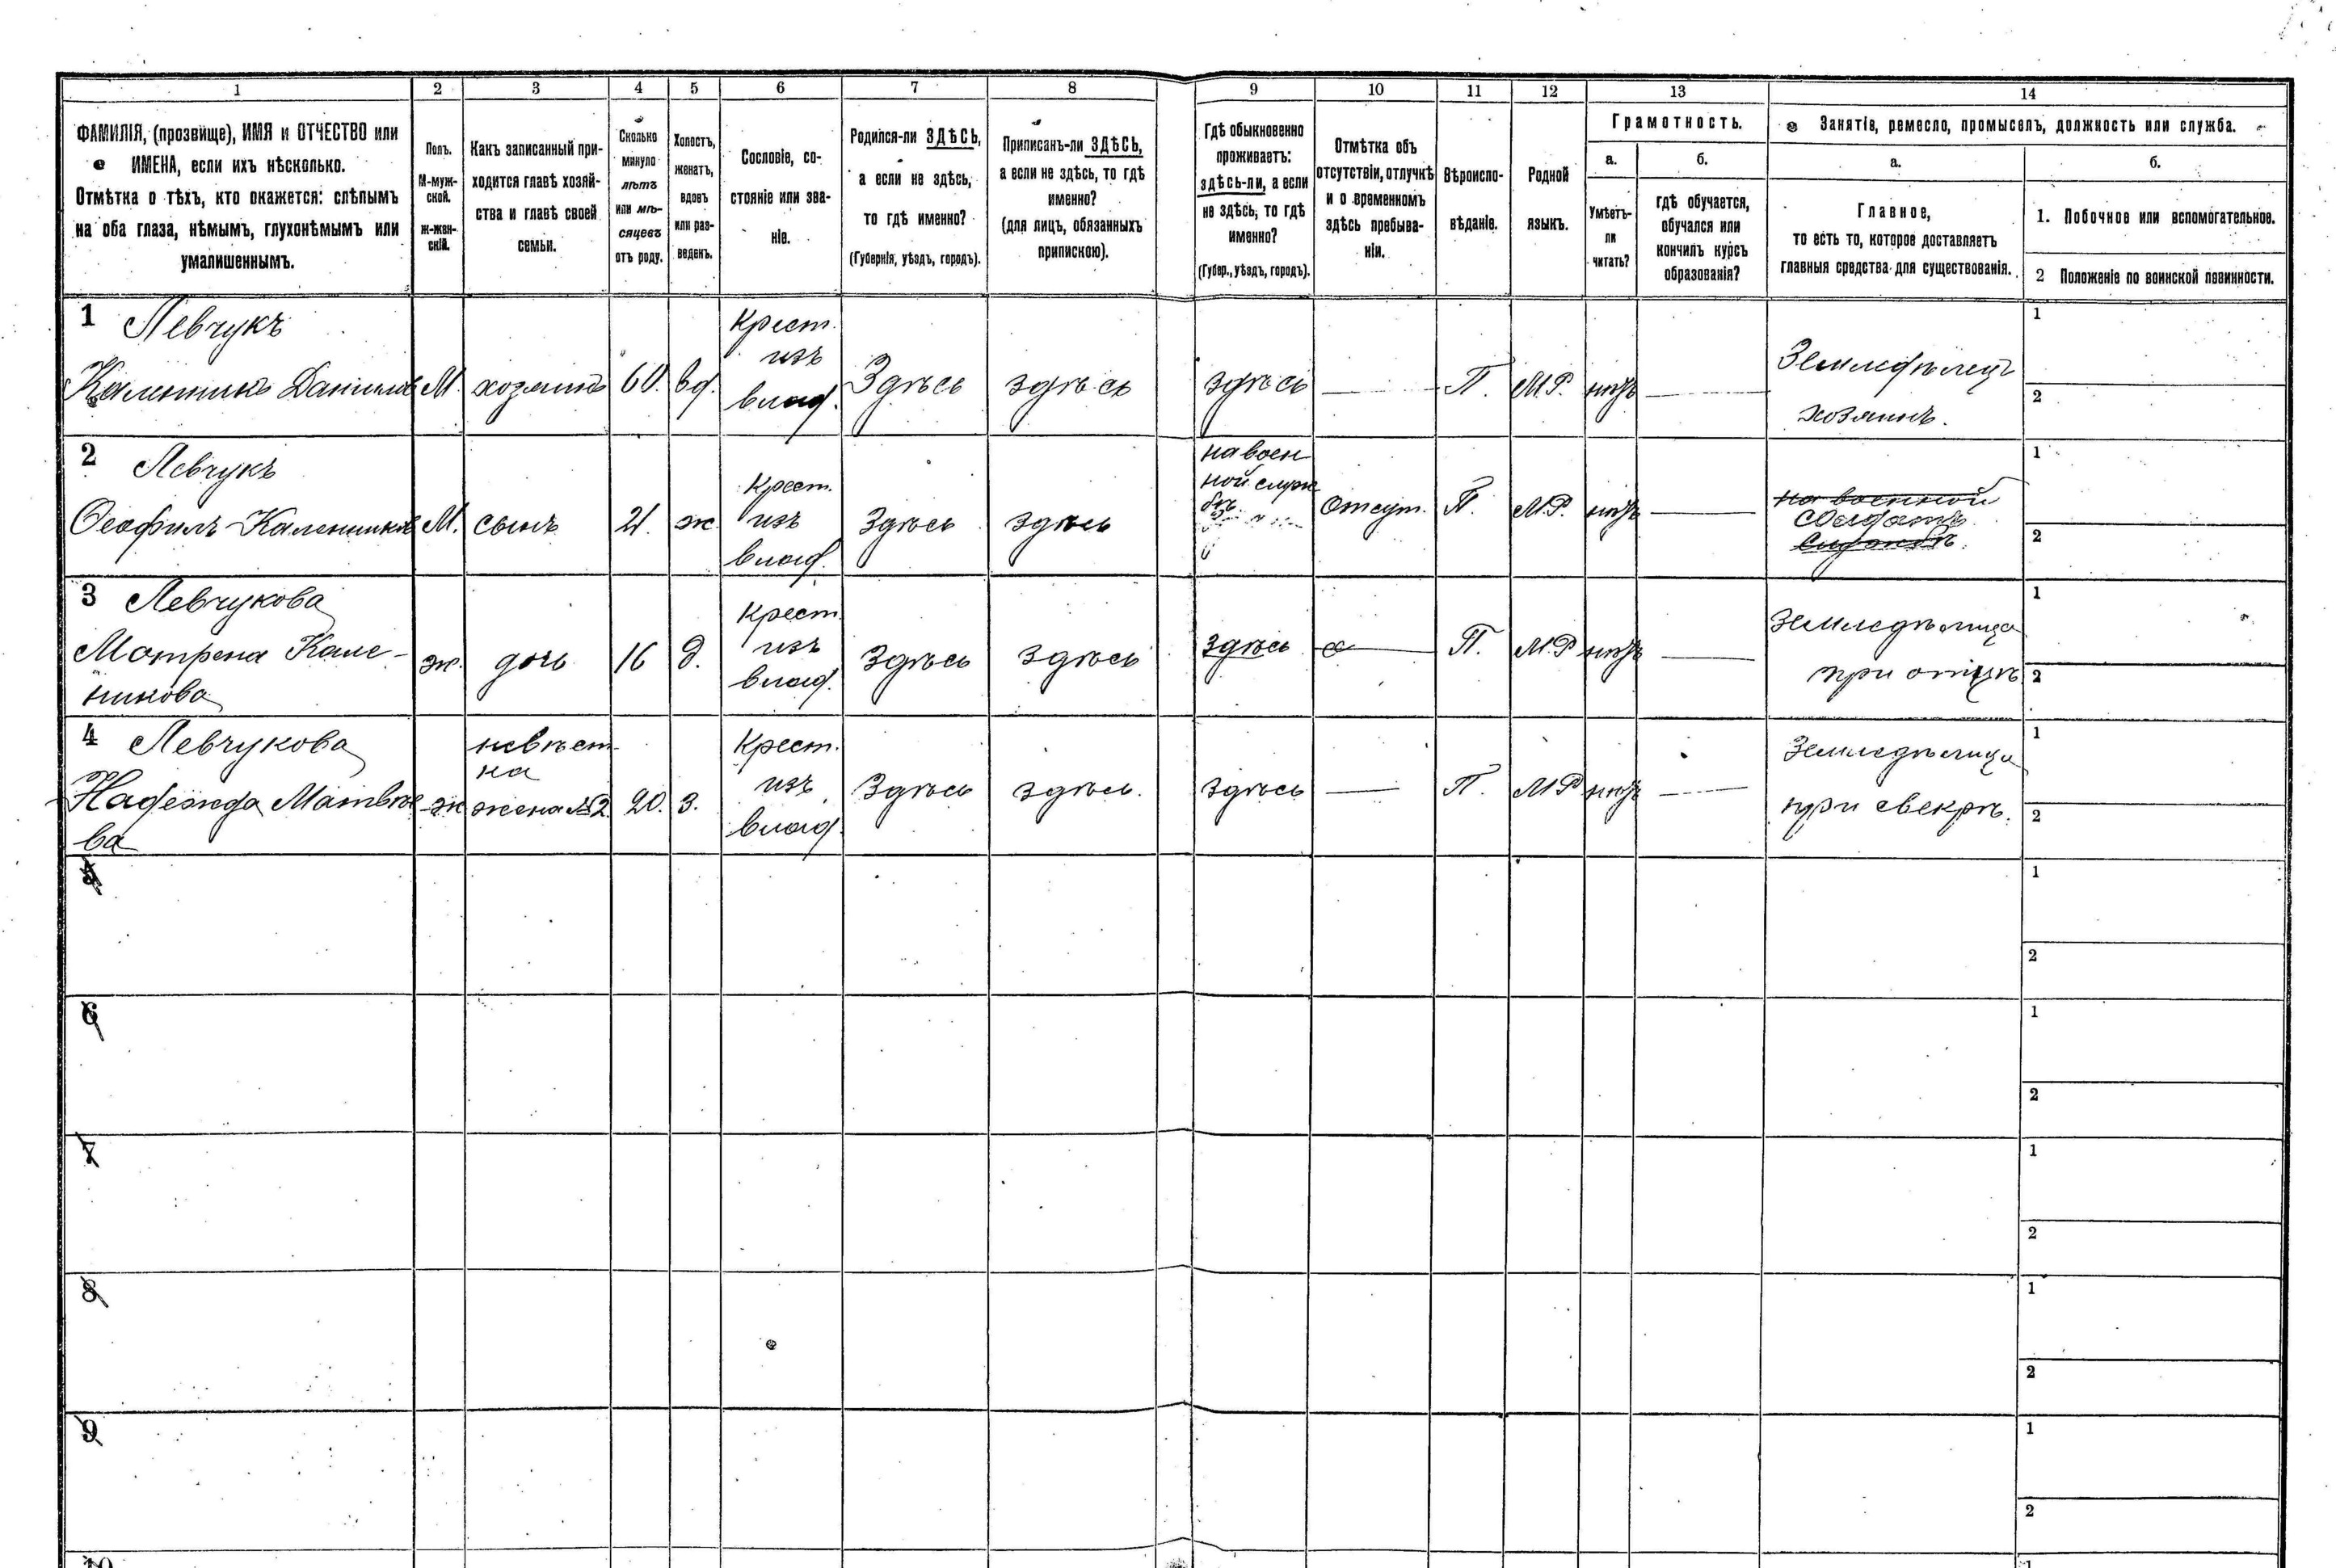 1 2 3 4 5 6 7 8 9 10 11 12 13 14
ФАМИЛІЯ, (прозвище), ИМЯ и ОТЧЕСТВО или
ИМЕНА, если ихъ нѣсколько.
Отмѣтка о тѣхъ, кто окажется: слѣпымъ
на оба глаза, нѣмымъ, глухонѣмымъ или
умалишеннымъ.
Полъ.
М-муж-
ской.
ж-жен-
скій.
Какъ записанный при-
ходится главѣ хозяй-
ства и главѣ своей
семьи.
Сколько
минуло
лѣтъ
или мѣ-
сяцевъ
отъ роду.
Холостъ,
женатъ,
вдовъ
или раз-
веденъ.
Сословіе, со-
стояніе или зва-
ніе.
Родился-ли ЗДѢСЬ,
а если не здѣсь,
то гдѣ именно?
(Губернія, уѣздъ, городъ).
Приписанъ-ли ЗДѢСЬ,
а если не здѣсь, то гдѣ
именно?
(для лицъ, обязанныхъ
припискою).
Гдѣ обыкновенно
проживаетъ:
здѣсь-ли, а если
не здѣсь, то гдѣ
именно?
(Губер., уѣздъ, городъ).
Отмѣтка объ
отсутствіи, отлучкѣ
и о временномъ
здѣсь пребыва-
ніи.
Вѣроиспо-
вѣданіе.
Родной
языкъ.
Грамотность.
а.
Умѣетъ-
ли
читать?
б.
гдѣ обучается,
обучался или
кончилъ курсъ
образованія?
Занятія, ремесло, промыселъ, должность или служба.
а.
Главное,
то есть то, которое доставляетъ
главныя средства для существованія.
б.
1. Побочное или вспомогательное.
2 Положеніе по воинской повинности.
1 Левчукъ
Каленикъ Даниловъ
М.
хозяинъ
60.
вд.
Крест.
изъ
влад.
Здѣсь
здѣсь
здѣсь
—
П.
М.Р.
нѣтъ
—
Земледѣлецъ
хозяинъ.
1
2
2 Левчукъ
Ѳеофилъ Калениковъ
М.
сынъ
21.
ж
Крест.
изъ
влад.
Здѣсь
здѣсь
на воен
ной служ
бѣ
Отсут.
П.
М.Р.
нѣтъ
—
на военной
Солдатъ
службѣ.
1
2
3 Левчукова
Матрена Кале-
никова
ж.
дочь
16
д.
Крест.
изъ
влад.
Здѣсь
здѣсь
здѣсь
—
П.
М.Р
нѣтъ
—
Земледѣлица
при отцѣ
1
2
4 Левчукова
Надежда Матвѣе
ва
ж
невѣст-
ка
жена №2.
20.
з.
Крест.
изъ
влад.
Здѣсь
здѣсь.
здѣсь
—
П.
М Р
нѣтъ
—
Земледѣлица
при свекрѣ.
1
2
5
1
2
6
1
2
7
1
2
8
1
2
9
1
2
10
1